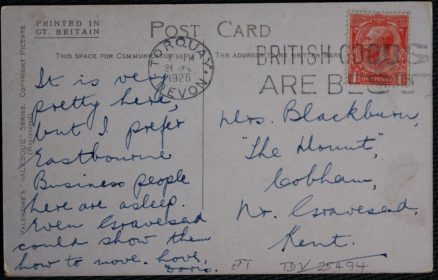 PRINTED IN
GT. BRITAIN
POST CARD
THIS SPACE FOR COMMUNICATION
VALENTINE'S "VALESQUE" SERIES. COPYRIGHT PICTURE
(REGISTERED)
TORQUAY
PM
24
1926
DEVON
BRITISH GOODS
ARE BEST
It is very
pretty here,
but I prefer
Eastbourne
Business people
here are asleep.
Even Gravesend
could show them
how to move. Love,
Doris.
Mrs. Blackburn,
"The Mount",
Cobham,
Nr. Gravesend,
Kent.
TDV 25494